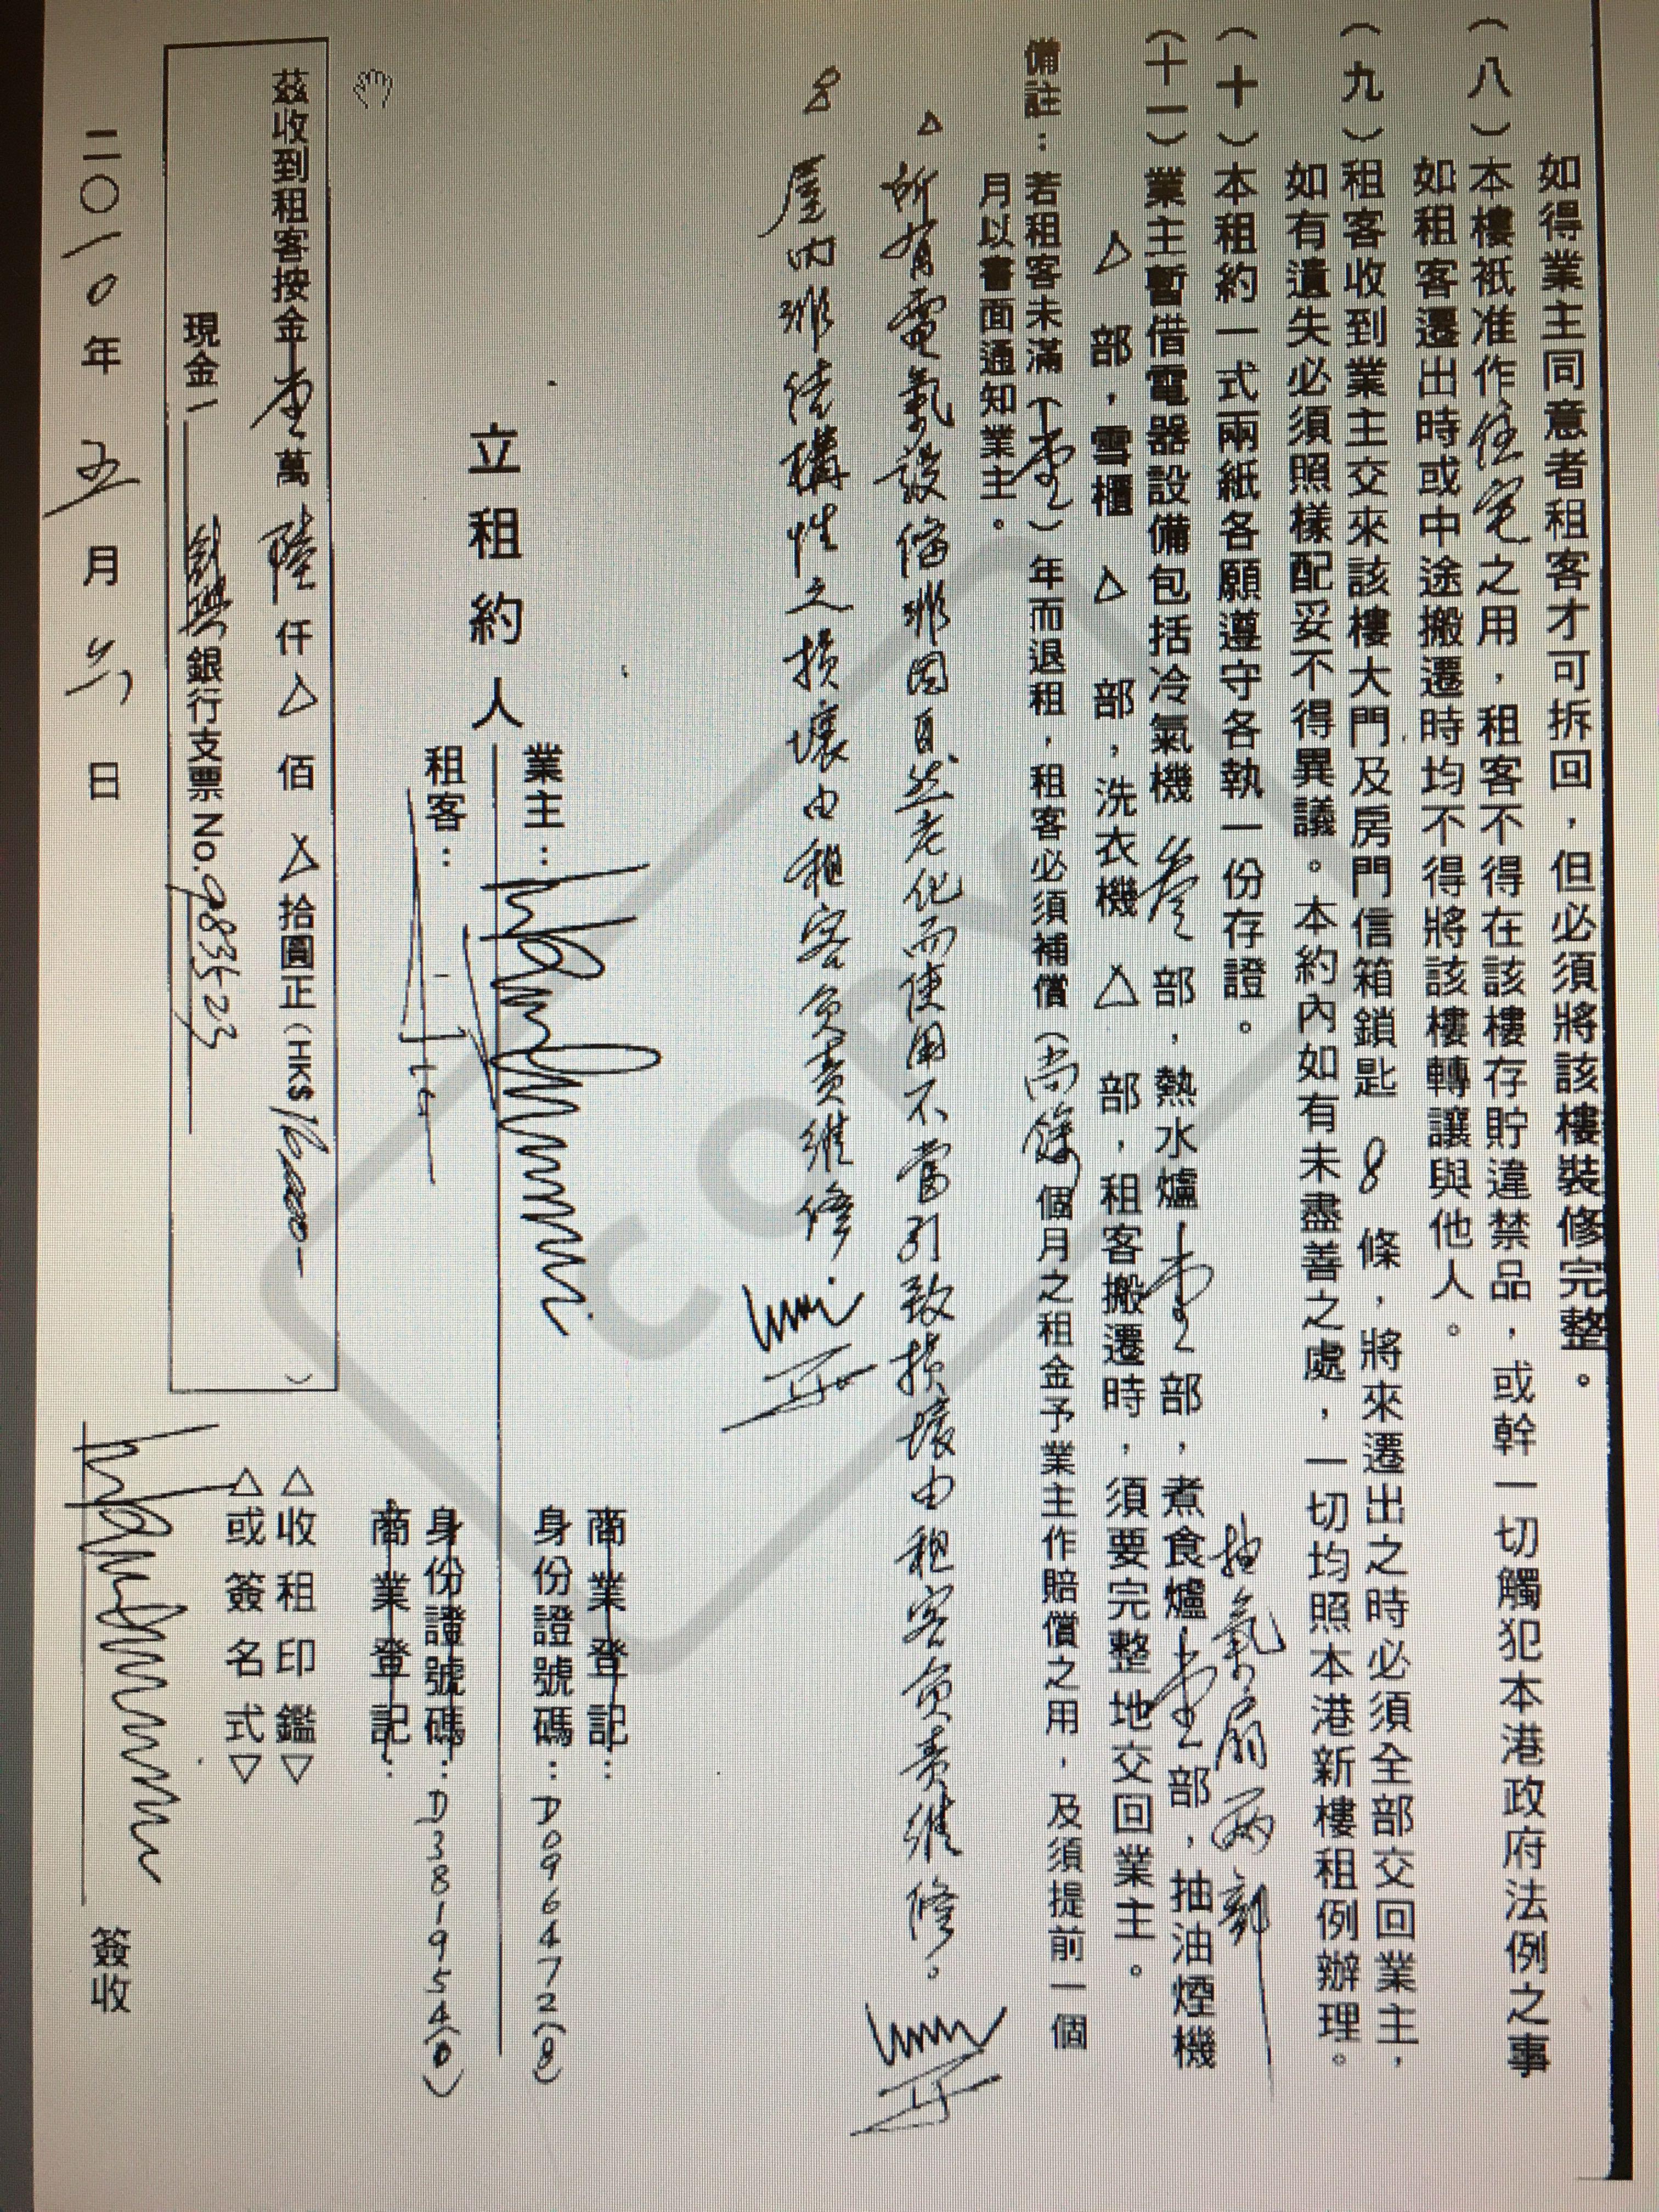 如得業主同意者租客才可拆回,但必須將該樓裝修完整。
(八)本樓祇准作住宅之用,租客不得在該樓存貯違禁品,或幹一切觸犯本港政府法例之事
如租客遷出時或中途搬遷時均不得將該樓轉讓與他人。
(九)租客收到業主交來該樓大門及房門信箱鎖匙 8 條,將來遷出之時必須全部交回業主,
如有遺失必須照樣配妥不得異議。本約內如有未盡善之處,一切均照本港新樓租例辦理。
(十)本租約一式兩紙各願遵守各執一份存證。
抽氣扇兩部
(十一)業主暫借電器設備包括冷氣機 叁 部,熱水爐 壹 部,煮食爐 壹 部,抽油煙機
△ 部,雪櫃 △ 部,洗衣機 △ 部,租客搬遷時,須要完整地交回業主。
備註:若租客未滿(壹)年而退租,租客必須補償(尚餘)個月之租金予業主作賠償之用,及須提前一個
月以書面通知業主。
△ 所有電氣設備非因自然老化而使用不當引致損壞由租客負責維修。
& 屋內非結構性之損壞由租客負責維修.
立租約人
業主:
商業登記:
身份證號碼:D096472(8)
租客:
身份證號碼:D381954(0)
商業登記:
茲收到租客按金 壹 萬 陸 仟 △ 佰 △ 拾圓正(HK$16000-)
現金/ 銀行支票 No. 983523
△收租印鑑▽
△或簽名式▽
二〇一0年 五 月 六 日
簽收
COPY